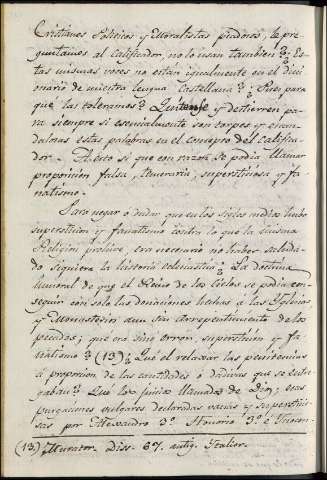 Cristianos Politicos y Moralistas piadosos, le pre
guntamos al Calificador, no lo usan tambien? ¿Es
tas mismas voces no estan igualmente en el dicci
onario de nuestra lengua Castellana? ¿Pues para
que las toleramos? Quitense y destierren pa
ra siempre si esencialmente son torpes y escan
dalosas estas palabras en el concepto del Califica
dor. Aesto si que con razon se podia llamar
proposicion falsa, temeraria, supersticiosa y fa
natismo.
Para negar ó dudar que en los siglos medios hubo
supersticion y fanatismo contra lo que la misma
Religion prohive, era necesario no haber saluda
do siquiera la historia eclesiastica? La doctrina
inmoral de que el Reino de los Cielos se podia con
seguir con solo las donaciones hechas á las Iglesias
y Monasterios aun sin arrepentimiento de los
pecados; que era sino error, supersticion y fa
natismo? (13) ¿Qué el relaxar las penitencias
á proporcion de las cantidades ó dadivas que se entre
gaban? Qué los juicios llamados de Dios, esas
purgaciones vulgares declaradas vanas y supersticio
sas por Alexandro 3.º Honorio 3.º é Inocen
(13) Murator. Diss. 67. antiq. Italic.